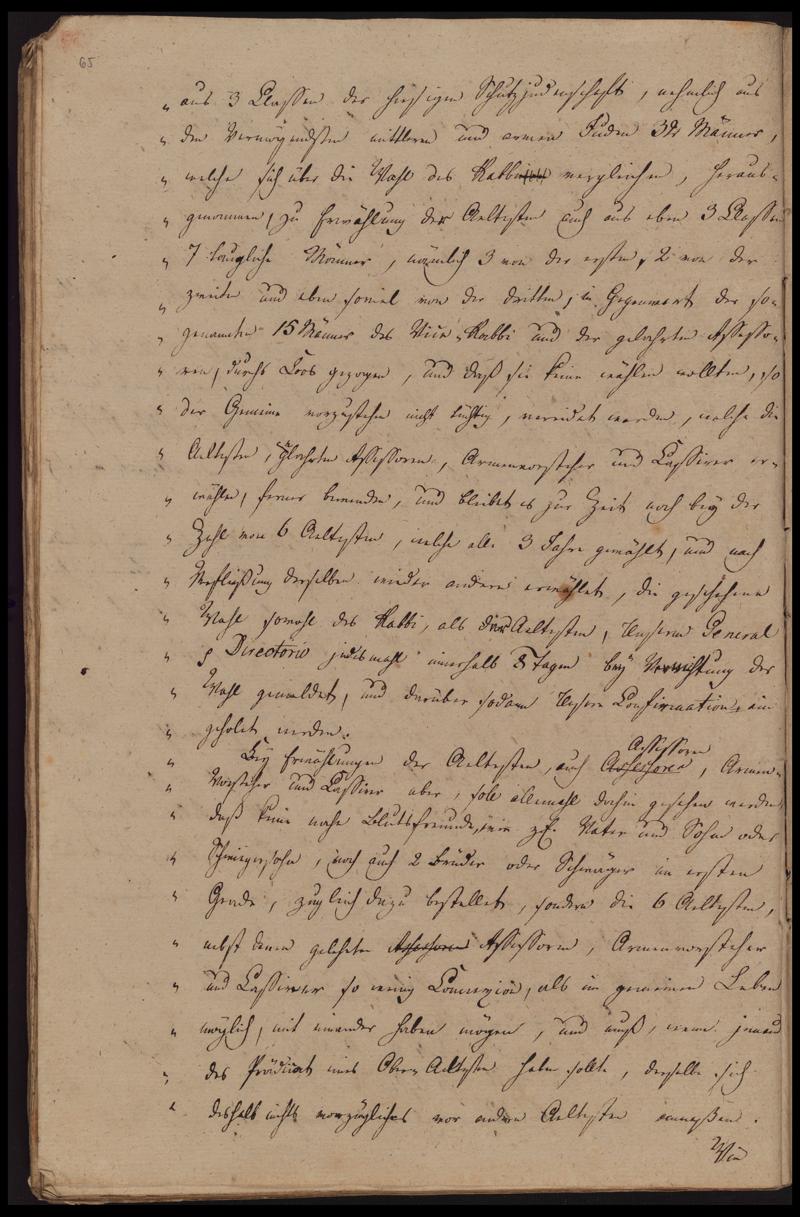 65
„ aus 3 Classen der hiesigen Schutzjudenschaft, nehmlich aus
„ den Vermögendsten mittlern und armen Juden 32 Männer,
„ welche sich über die Wahl des Rabbi vergleichen, heraus-
„ genommen, zu Erwählung der Aeltesten auch aus eben 3 Classen
„ 7 taugliche Männer, nämlich 3 von der ersten, 2 von der
„ zweiten und eben soviel von der dritten, in Gegenwart der so-
„ genannten 15 Männer des Vice-Rabbi und der gelehrten Assesso-
„ ren, durchs Loos gezogen, und daß sie keine wählen wollten, so
„ der Gemeine vorzustehen nicht tüchtig, vereidet werden, welche die
„ Aeltesten, gelehrten Assessoren, Armenvorsteher und Cassirer er-
„ wählen, ferner bewenden, und bleibet es zur Zeit noch bey der
„ Zahl von 6 Aeltesten, welche alle 3 Jahre gewählt, und nach
„ Verfließung derselben wieder andere erwählet, die geschehene
„ Wahl sowohl des Rabbi, als der Aeltesten, Unserm General
„ p Directorio jedesmahl innerhalb 8 Tagen bey Vernichtung der
„ Wahl gemeldet, und darüber sodann Unsere Confirmation ein
„ geholet werden.
„ Bey Erwählungen der Aeltesten, auch Assessoren, Armen-
„ Vorsteher und Cassirer aber, soll allemahl dahin gesehen werden,
„ daß keine nahe Blutsfreunde, wie z.E. Vater und Sohn oder
„ Schwiegersohn, noch auch 2 Brüder oder Schwäger im ersten
„ Grade, zugleich dazu bestellet, sondern die 6 Aeltesten,
„ nebst denen gelehrten Assessoren, Armenvorsteher
„ und Cassirer so wenig Connexion, als im gemeinen Leben
„ möglich, mit einander haben mögen, und muß, wenn jemand
„ das Prädicat eines Ober-Aeltesten haben sollte, derselbe sich
„ deshalb nichts vorzügliches vor andern Aeltesten anmaßen.